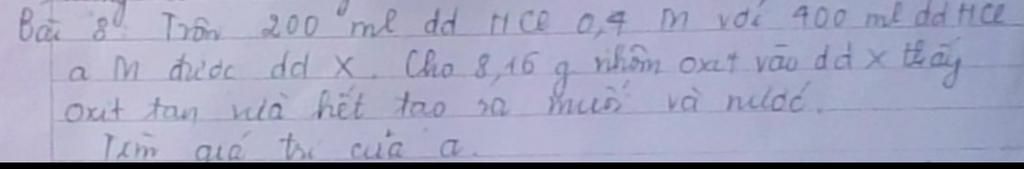 Bài 8: Trộn 200 ml dd HCl 0,4 M với 400 ml dd HCl
a M được dd X. Cho 8,16 g nhôm oxit vào dd X thấy
oxit tan vừa hết tạo ra muối và nước.
Tìm giá trị của a.